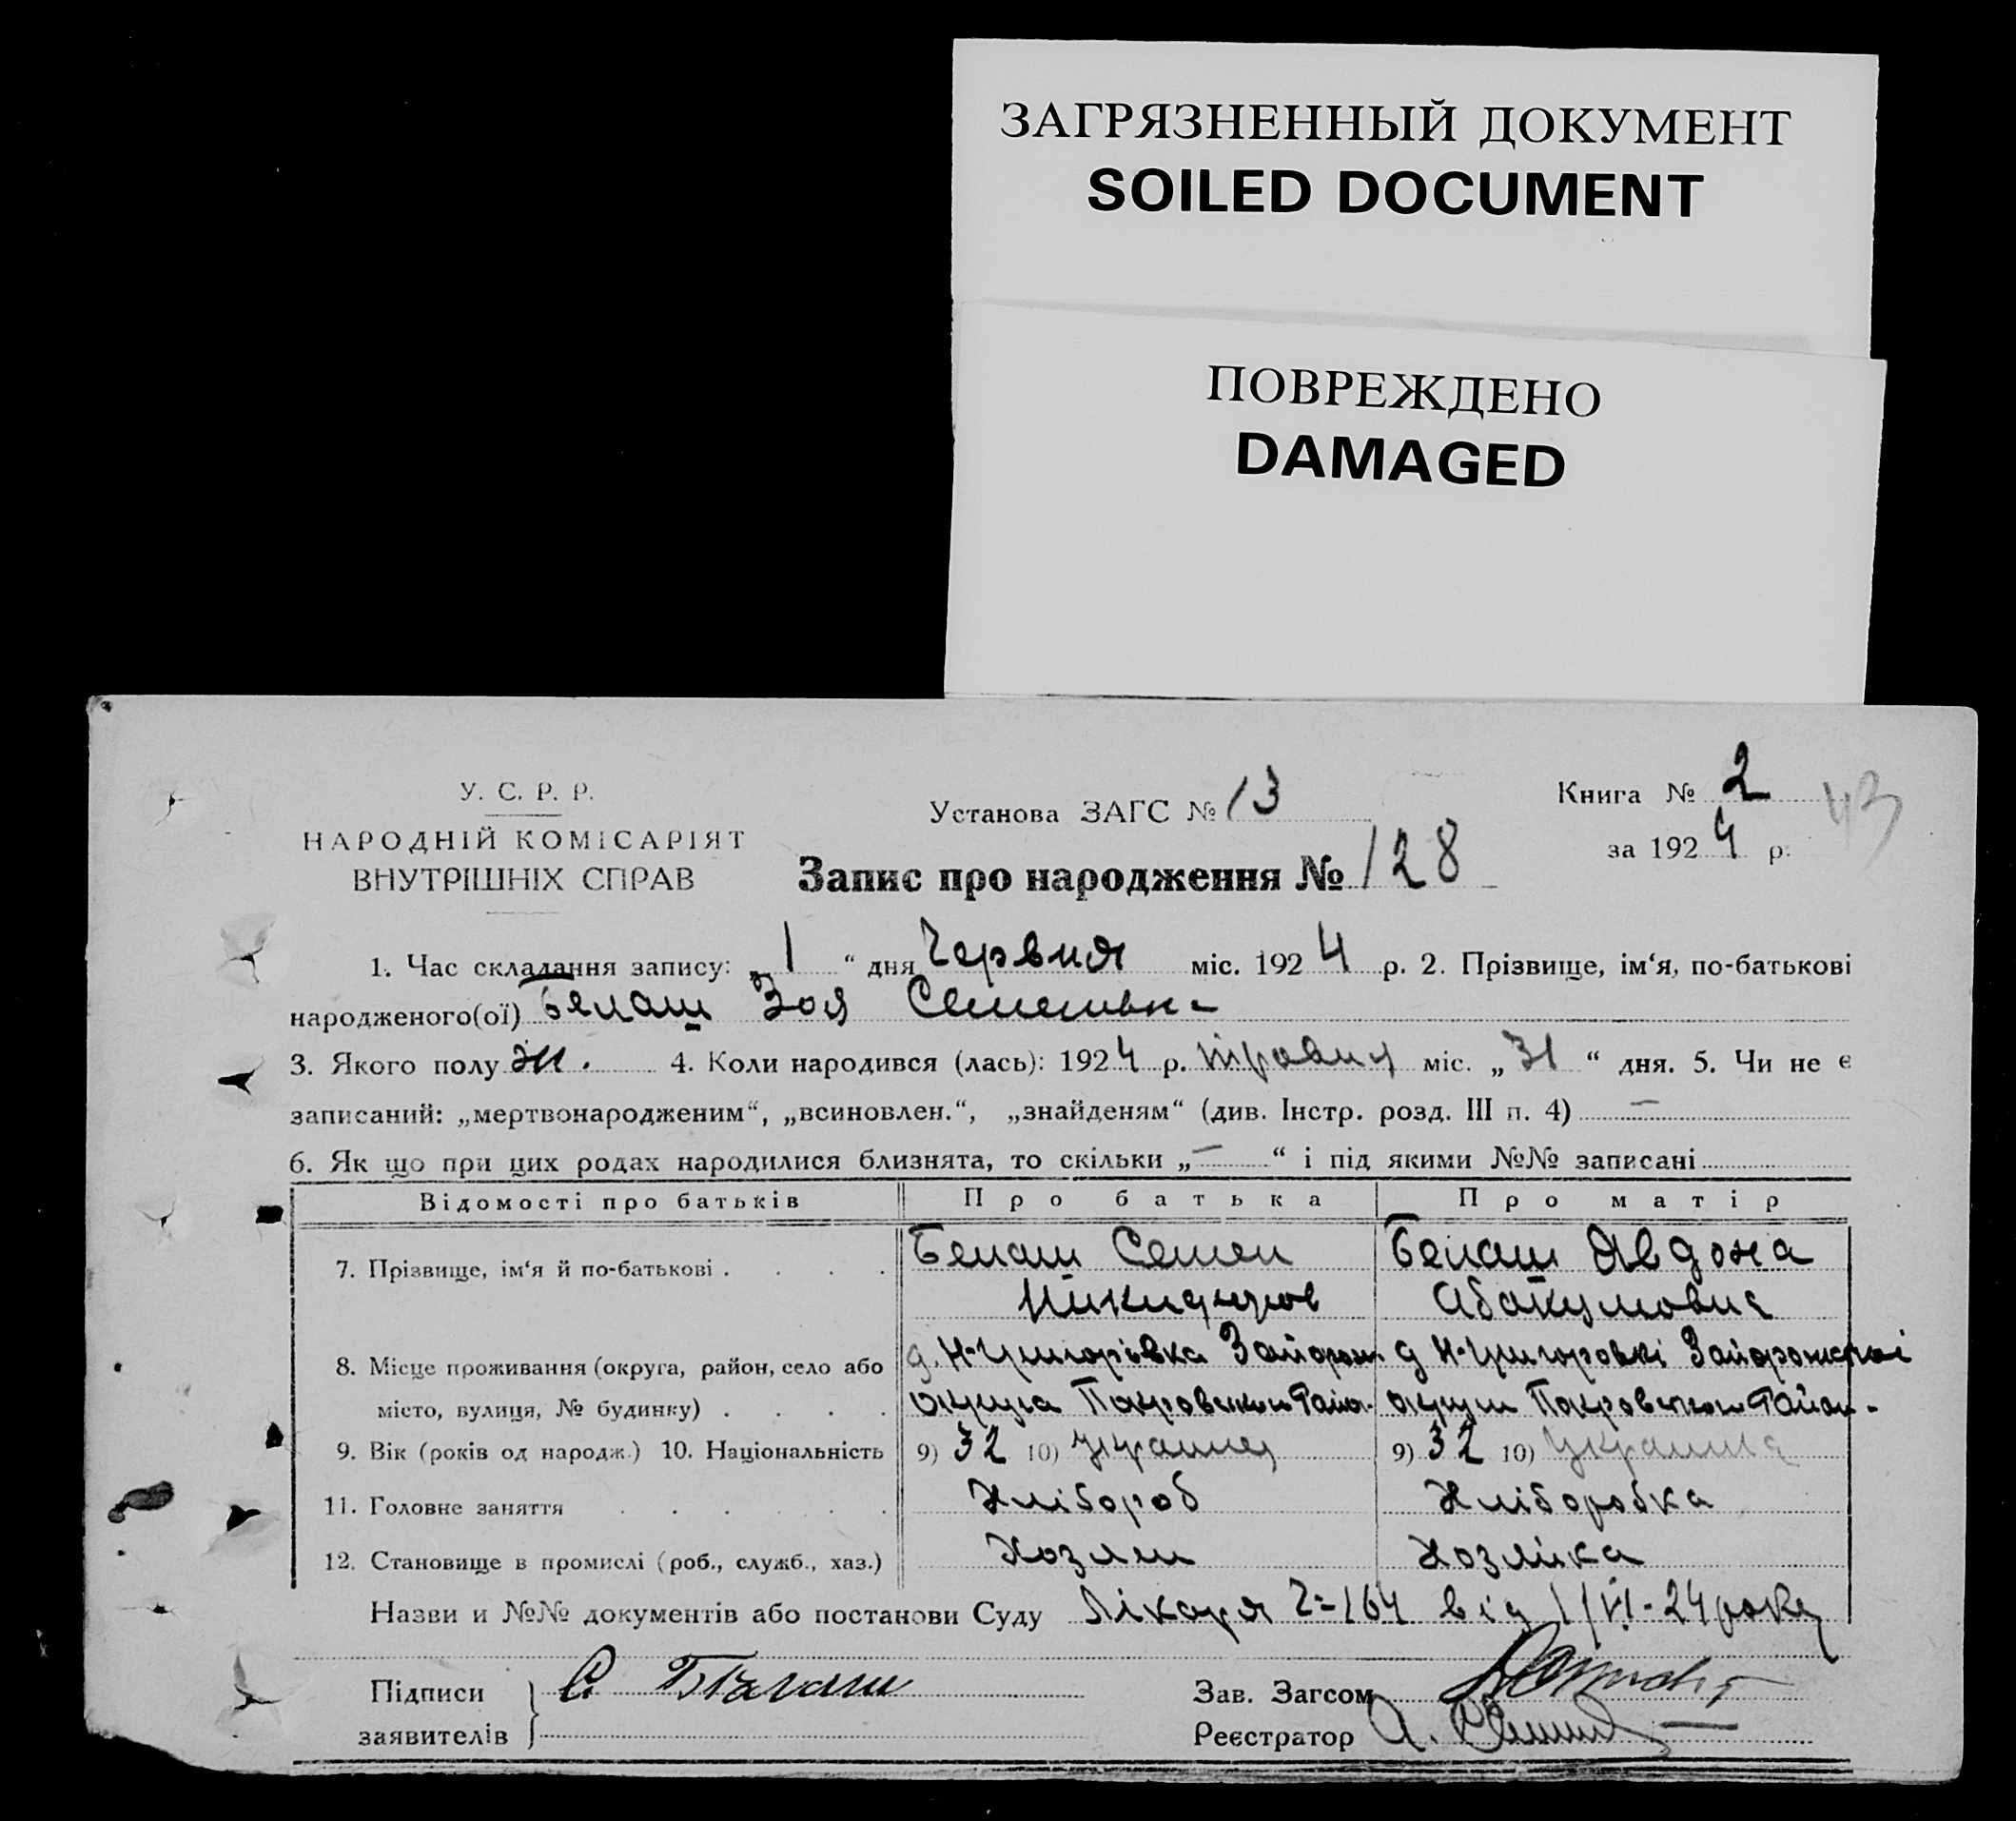 ЗАГРЯЗНЕННЫЙ ДОКУМЕНТ
SOILED DOCUMENT
ПОВРЕЖДЕНО
DAMAGED
У. С. Р. Р.
НАРОДНІЙ КОМІСАРІЯТ
ВНУТРІШНІХ СПРАВ
Установа ЗАГС № 13
Книга № 2
43
за 1924 р.
Запис про народження № 128
1. Час складання запису: „ 1 “ дня Червня міс. 1924 р. 2. Прізвище, ім‘я, по-батькові
народженого(ої) Белаш Зоя Семеновна
3. Якого полу ж. 4. Коли народився (лась): 1924 р. травня міс. „ 31 “ дня. 5. Чи не є
записаний: „мертвонародженим“, „всиновлен.“, „знайденям“ (див. Інстр. розд. III п. 4) —
6. Як що при цих родах народилися близнята, то скільки „ — “ і під якими №№ записані
Відомості про батьків Про батька Про матір
7. Прізвище, ім‘я й по-батькові . . . . Белаш Семен Белаш Явдоха
Абакумовна
8. Місце проживання (округа, район, село або
місто, вулиця, № будинку) . . . .
9. Вік (років од народж.) 10. Національність 9) 32 10) Украинец 9) 32 10) Украинка
11. Головне заняття . . . . . . Хлібороб Хліборобка
12. Становище в промислі (роб., служб., хаз.) Хозяин Хозяйка
Назви и №№ документів або постанови Суду Лікаря Ч=164 від 1/VI-24 року
Підписи
заявителів
Зав. Загсом
Реєстратор